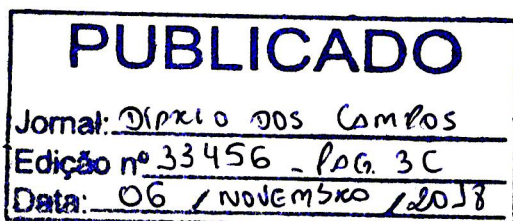 PUBLICADO
Jornal: DIÁRIO DOS CAMPOS
Edição nº 33456 - PÁG. 3C
Data: 06 / NOVEMBRO / 2018